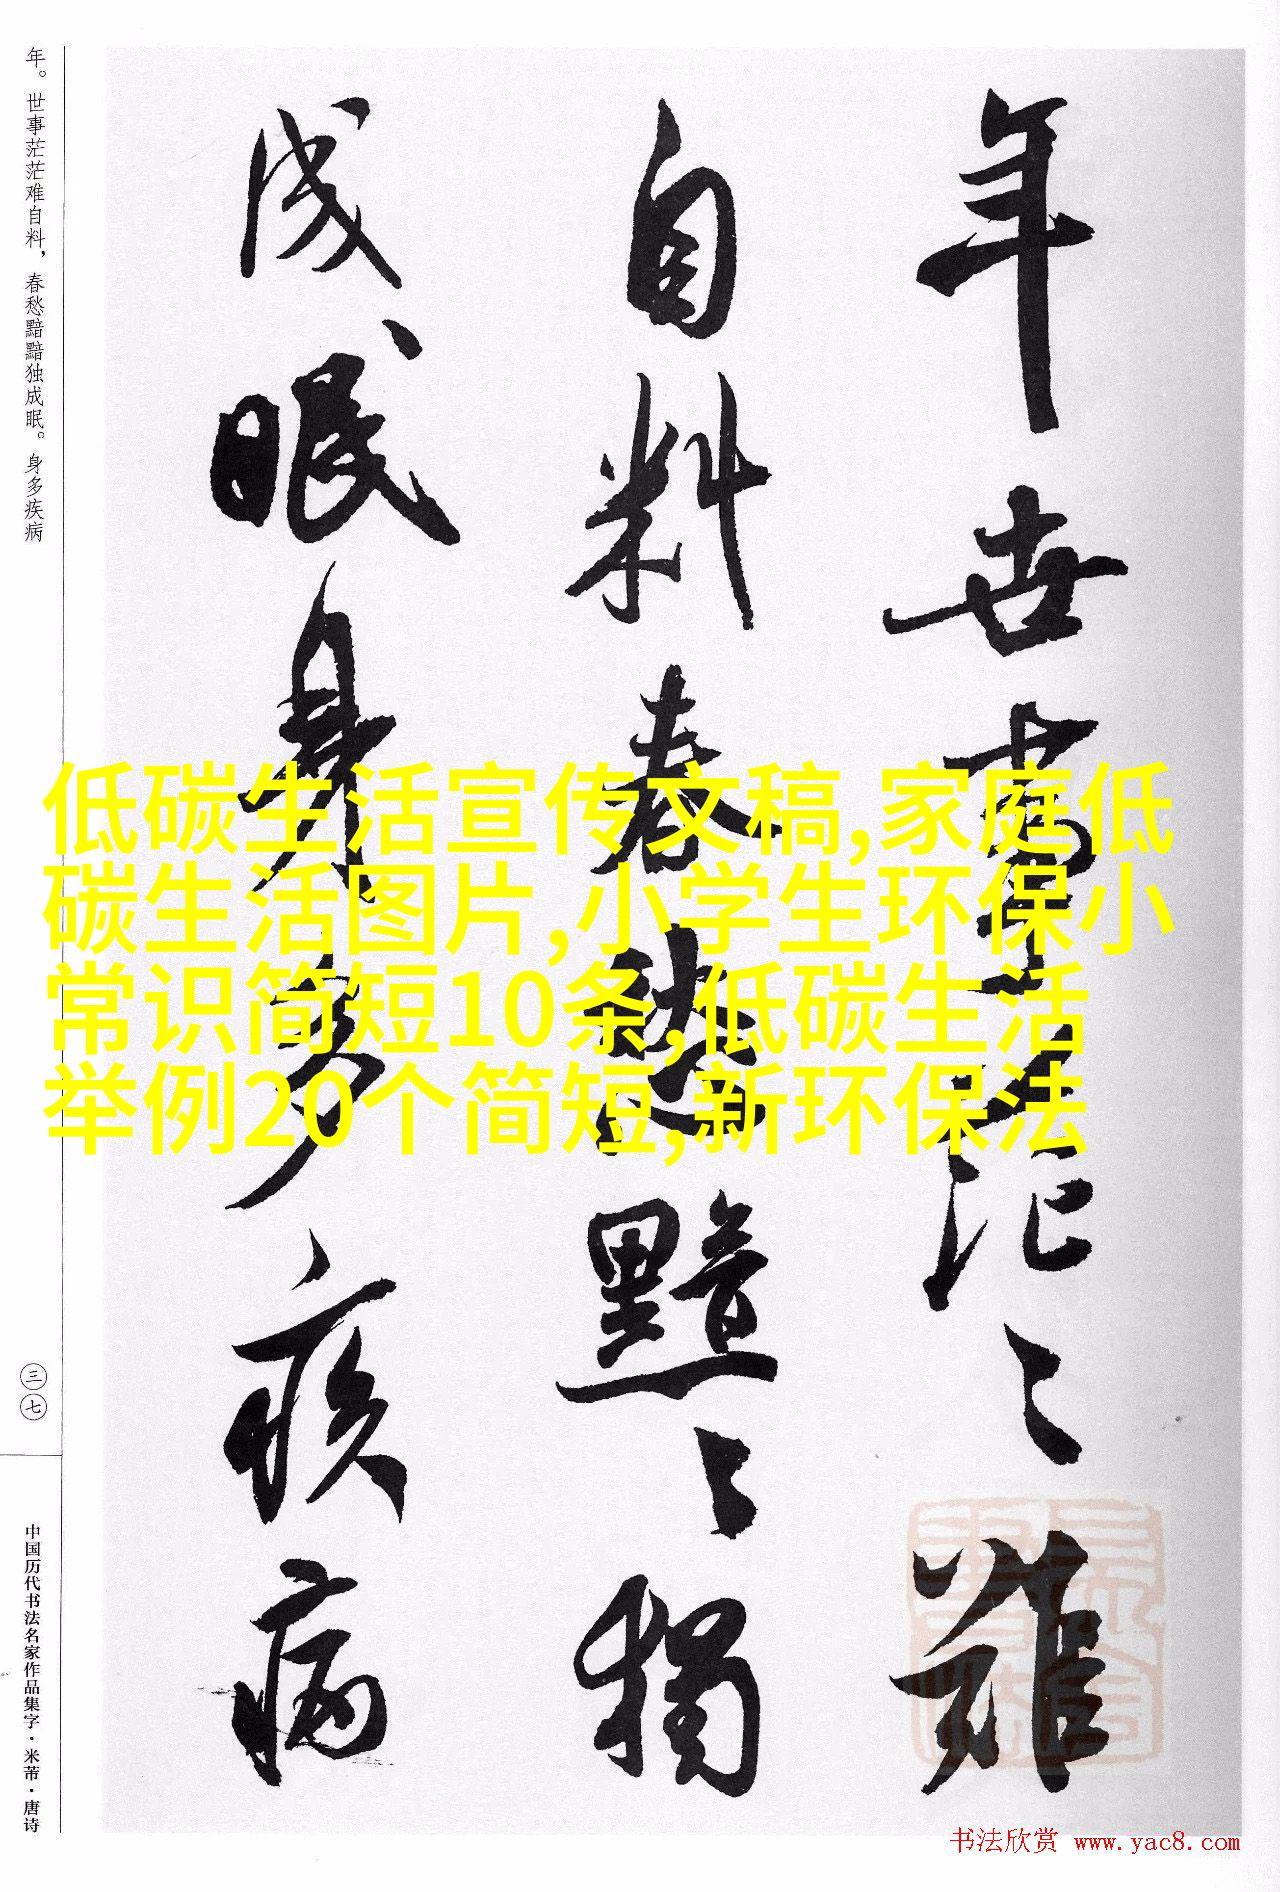 年世事茫〻難
自料春愁黯〻獨
成眠身多疾病
年。世事茫茫难自料，春愁黯黯独成眠。身多疾病
三七
中国历代书法名家作品集字·米芾·唐诗
低碳生活宣传文稿,家庭低
碳生活图片,小学生环保小
常识简短10条,低碳生活
举例20个简短,新环保法
书法欣赏 www.yac8.com